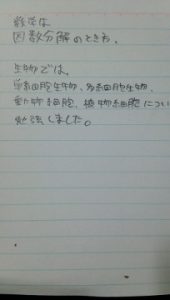 数学は
因数分解のとき方。
生物では、
単細胞生物、多細胞生物、
動物細胞、植物細胞につい
勉強しました。